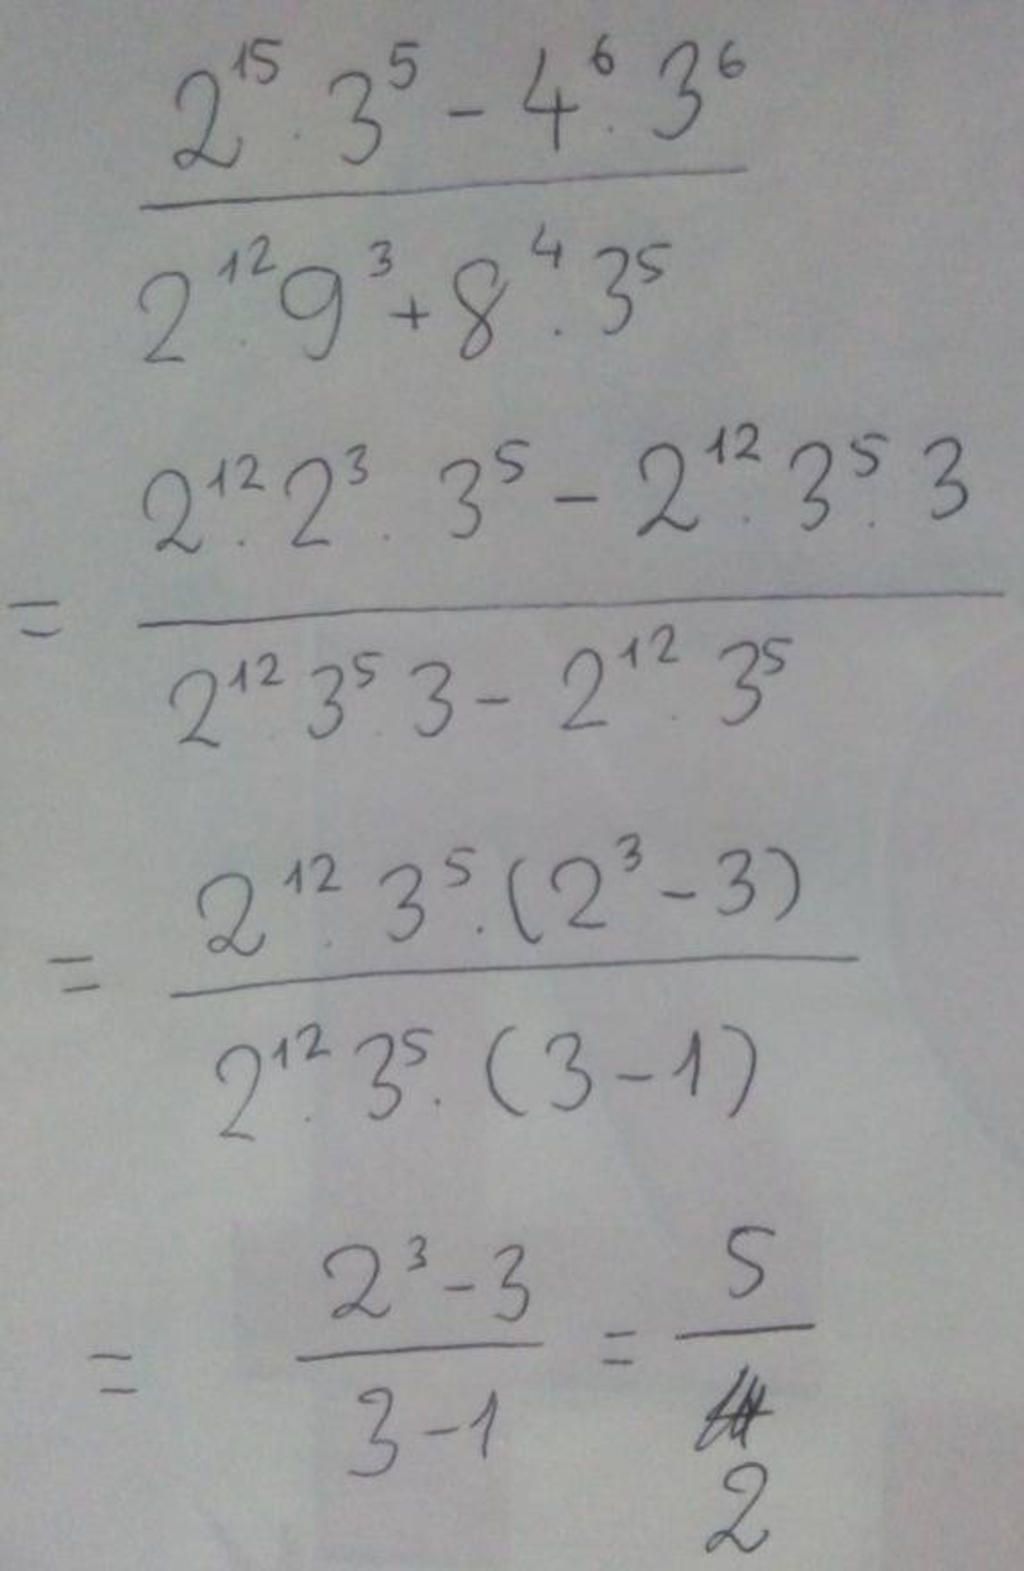 2¹⁵ . 3⁵ - 4⁶ . 3⁶
2¹² . 9³ + 8⁴ . 3⁵
2¹² . 2³ . 3⁵ - 2¹² . 3⁵ . 3
=
2¹² . 3⁵ . 3 - 2¹² . 3⁵
2¹² . 3⁵ . (2³ - 3)
=
2¹² . 3⁵ . (3 - 1)
= 2³ - 3 = 5
3 - 1
2